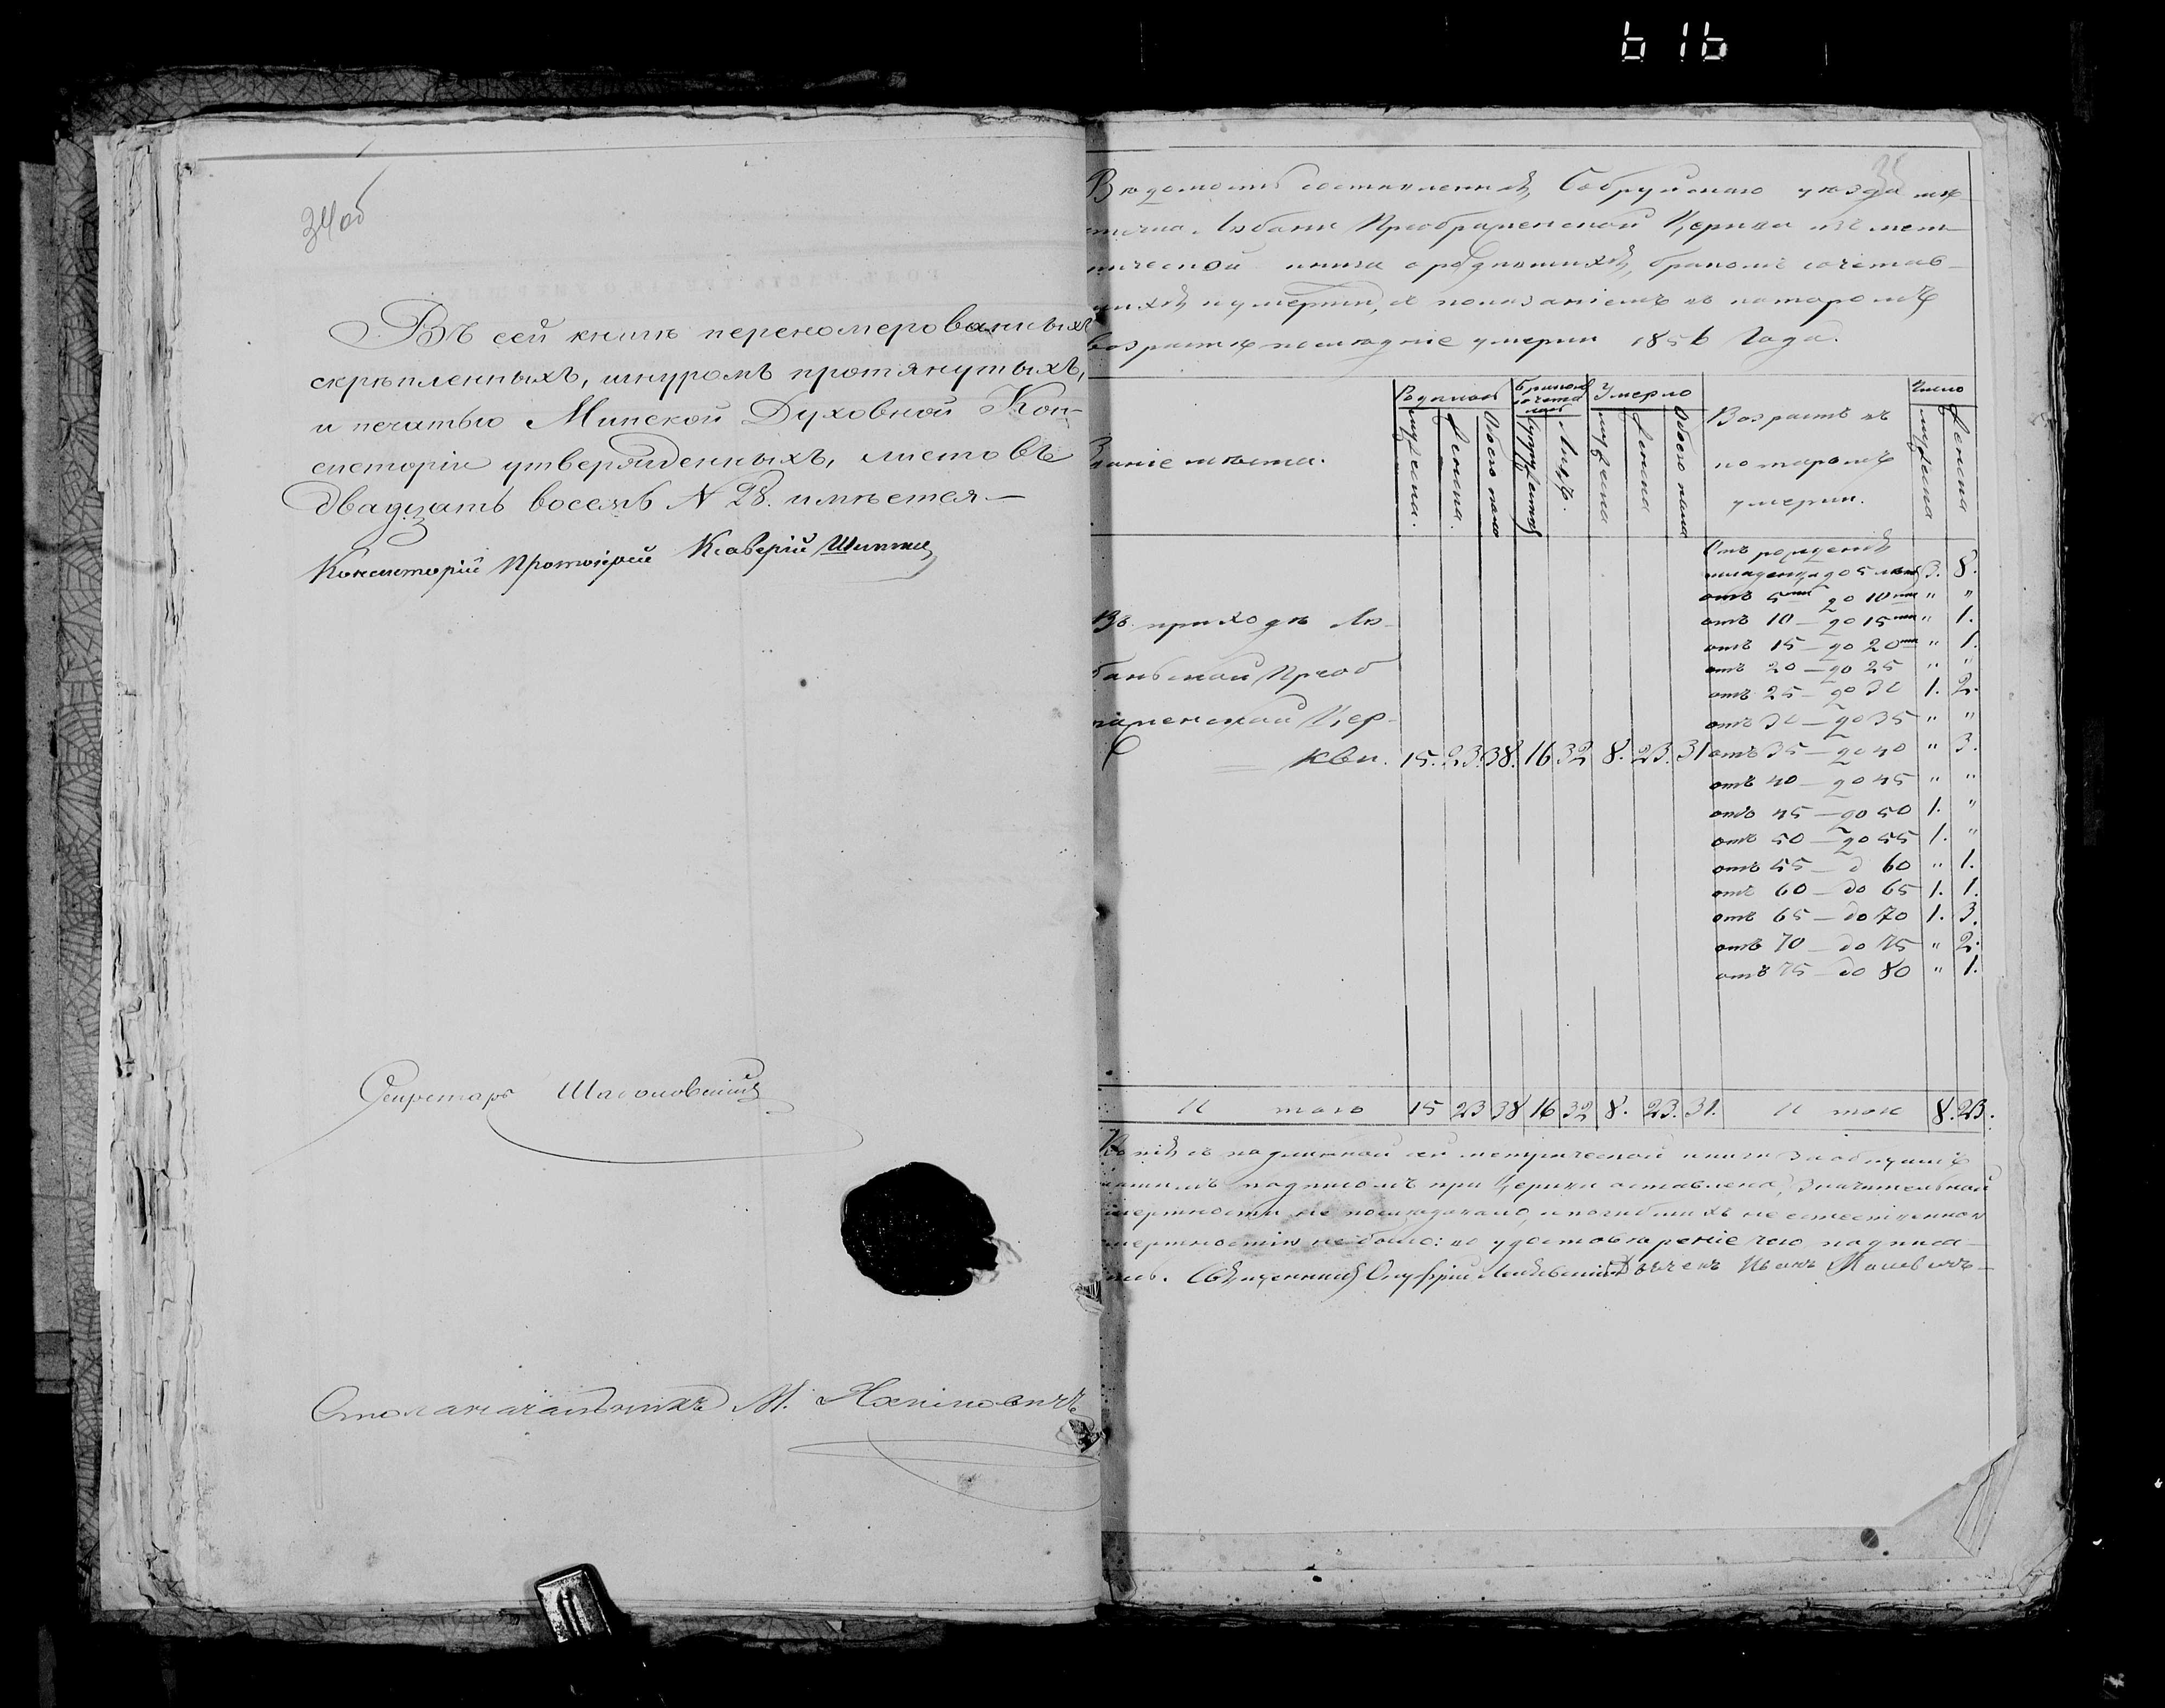 616
34об
Въ сей книгѣ перекомерованныхъ
скрѣпленныхъ, шнуромъ протянутыхъ,
и печатью Минской Духовной Кон-
систоріи утвержденныхъ, листовъ
двадцать восемь N 28. имѣется —
Консисторіи Протоіерей Ксаверій
Секретарь
Столоначальникъ М.
35
Вѣдомость составленная, Бобруйскаго уѣзда мѣ-
стечка Любани Преображенской Церкви изъ мет-
рической книги о родившихся, бракомъ сочетав-
шихся и умершихъ, съ показаніемъ въ которомъ
возрастѣ послѣдніе умерли 1856 Года.
Званіе мѣста.
Родилось
Бракомъ сочета лось
Умерло
Возрастъ въ
которомъ
умерли.
Число
мужеска.
женска.
Обоего пола
Супружествъ
Лицъ.
мужеска
женска
Обоего пола
мужеска
женска
Отъ рожденія
младенца до 5 лѣтъ 3. 8.
отъ 5ти до 10ти " "
отъ 10 — до 15ти " 1.
отъ 15 — до 20ти " 1.
отъ 20 — до 25 " "
отъ 25 — до 30 1. 2.
отъ 30 — до 35 " "
отъ 35 — до 40 " 3.
отъ 40 — до 45 " "
отъ 45 — до 50 1. "
отъ 50 — до 55 1. "
отъ 55 — д 60 " 1.
отъ 60 — до 65 1. 1.
отъ 65 — до 70 1. 3.
отъ 70 — до 75 " 2.
отъ 75 — до 80 " 1.
Въ приходѣ Лю-
баньской Преоб
раженской Цер-
кви. 15. 23. 38. 16 32 8. 23. 31
И того 15 23 38 16 32 8. 23. 31. И того 8. 23.
Копія съ подлинной сей метрической книги за общимъ
нашимъ подписомъ при Церкви оставлена, значительной
смертности не послѣдовало, и погибшихъ не естественною
смертностію не было: въ удостовѣреніе чего подписа-
лись. Священникъ Онуфрій Дьячекъ Иванъ